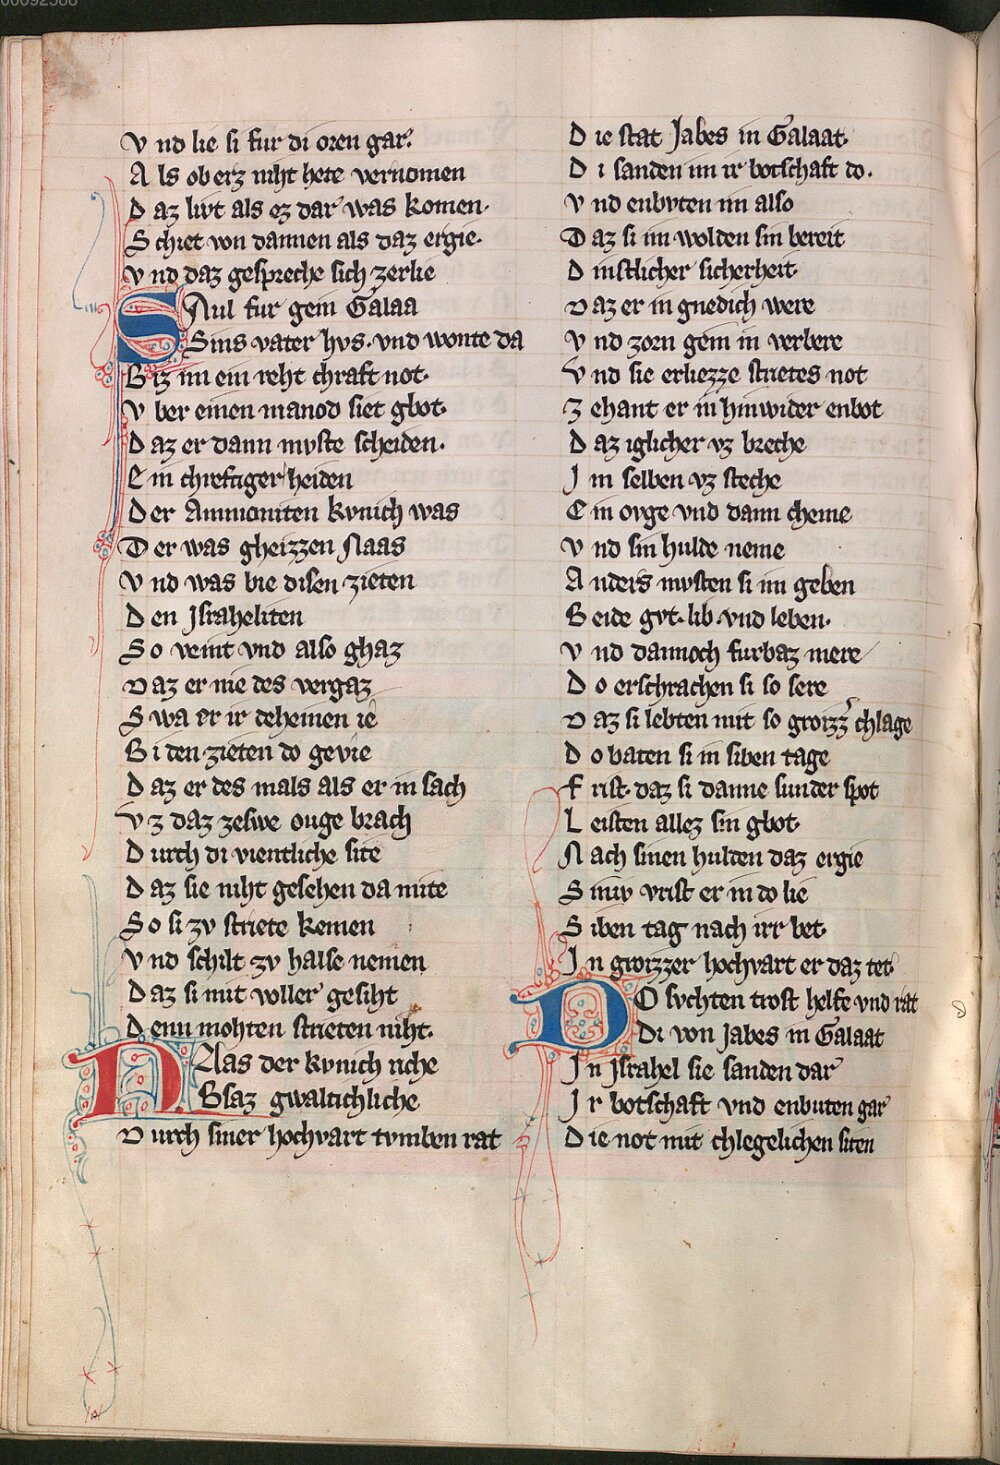 00092588
Vnd lie si fur di oren gar.
Als ob erz niht hete vernomen
Daz livt als ez dar was komen.
Schiet von dannen als daz ergie.
Vnd daz gespreche sich zerlie
Saul fur gein Galaa
Sins vater hvs. vnd wonte da
Biz im ein reht chraft not.
Vber einen manod siet gbot.
Daz er dann mvste scheiden.
Ein chreftiger heiden
Der Ammoniten kvnich was
Der was gheizzen Naas
Vnd was bie disen zieten
Den Jsraheliten
So veint vnd also ghaz
Daz er nie des vergaz
Swa er ir deheinen ie
Bi den zieten do gevie
Daz er des mals als er in sach
Vz daz zeswe ouge brach
Durch di vientliche site
Daz sie niht gesehen da mite
So si zv striete kemen
Vnd schilt zv halse nemen
Daz si mit voller gesiht
Denn mohten strieten niht.
Naas der kvnich riche
Bsaz gwaltichliche
Durch siner hochvart tvmben rat
Die stat Jabes in Galaat.
Di sanden im ir botschaft do.
Vnd enbvten im also
Daz si im wolden sin bereit
Dinstlicher sicherheit.
Daz er in gnedich were
Vnd zorn gein in verbere
Vnd sie erliezze strietes not
Zehant er in hinwider enbot
Daz iglicher vz breche
Im selben vz steche
Ein ovge vnd dann cheme
Vnd sin hulde neme
Anders mvsten si im geben
Beide gvt. lib. vnd leben.
Vnd dannoch furbaz mere
Do erschrachen si so sere
Daz si lebten mit so groizz chlage
Do baten si in siben tage
Frist. daz si danne sunder spot
Leisten allez sin gbot.
Nach sinen hulden daz ergie
Sinir vrist er in do lie
Siben tag nach irr bet.
In groizzer hochvart er daz tet.
Do svchten trost helfe vnd rat
Di von Jabes in Galaat
In Jsrahel sie sanden dar
Ir botschaft vnd enbuten gar
Die not mit chlegelichen siten